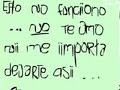 Esto no funciono
... no te amo
nii me iimporta
dejarte asii ...